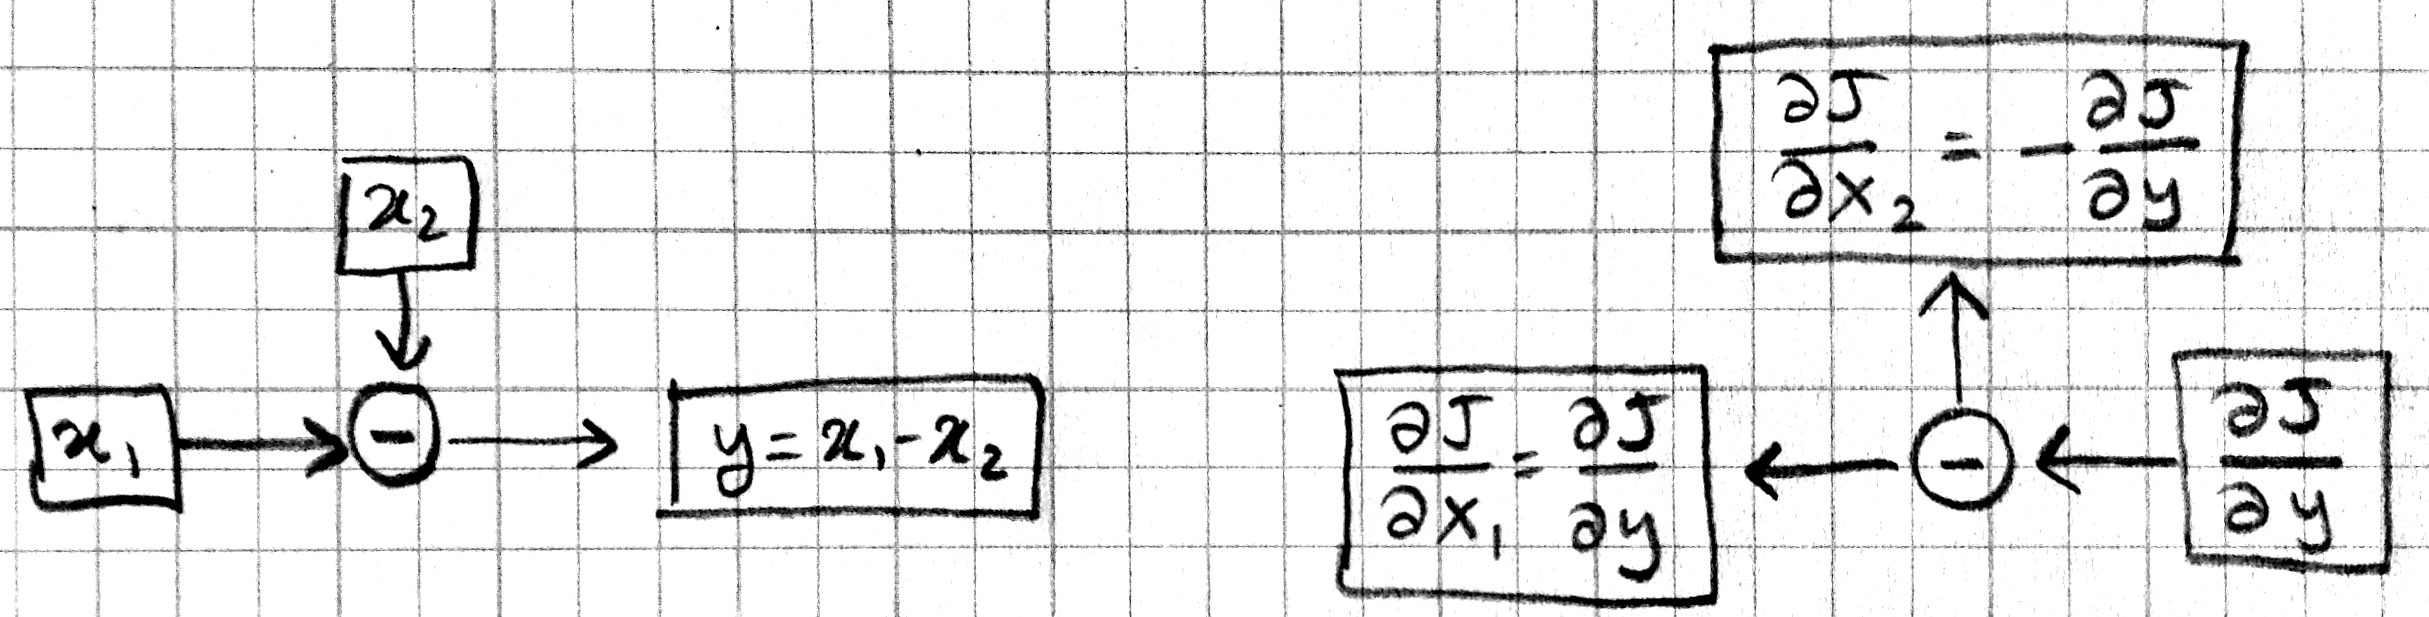 x₂
x₁
−
y = x₁ - x₂
∂J/∂x₂ = -∂J/∂y
∂J/∂x₁ = ∂J/∂y
−
∂J/∂y